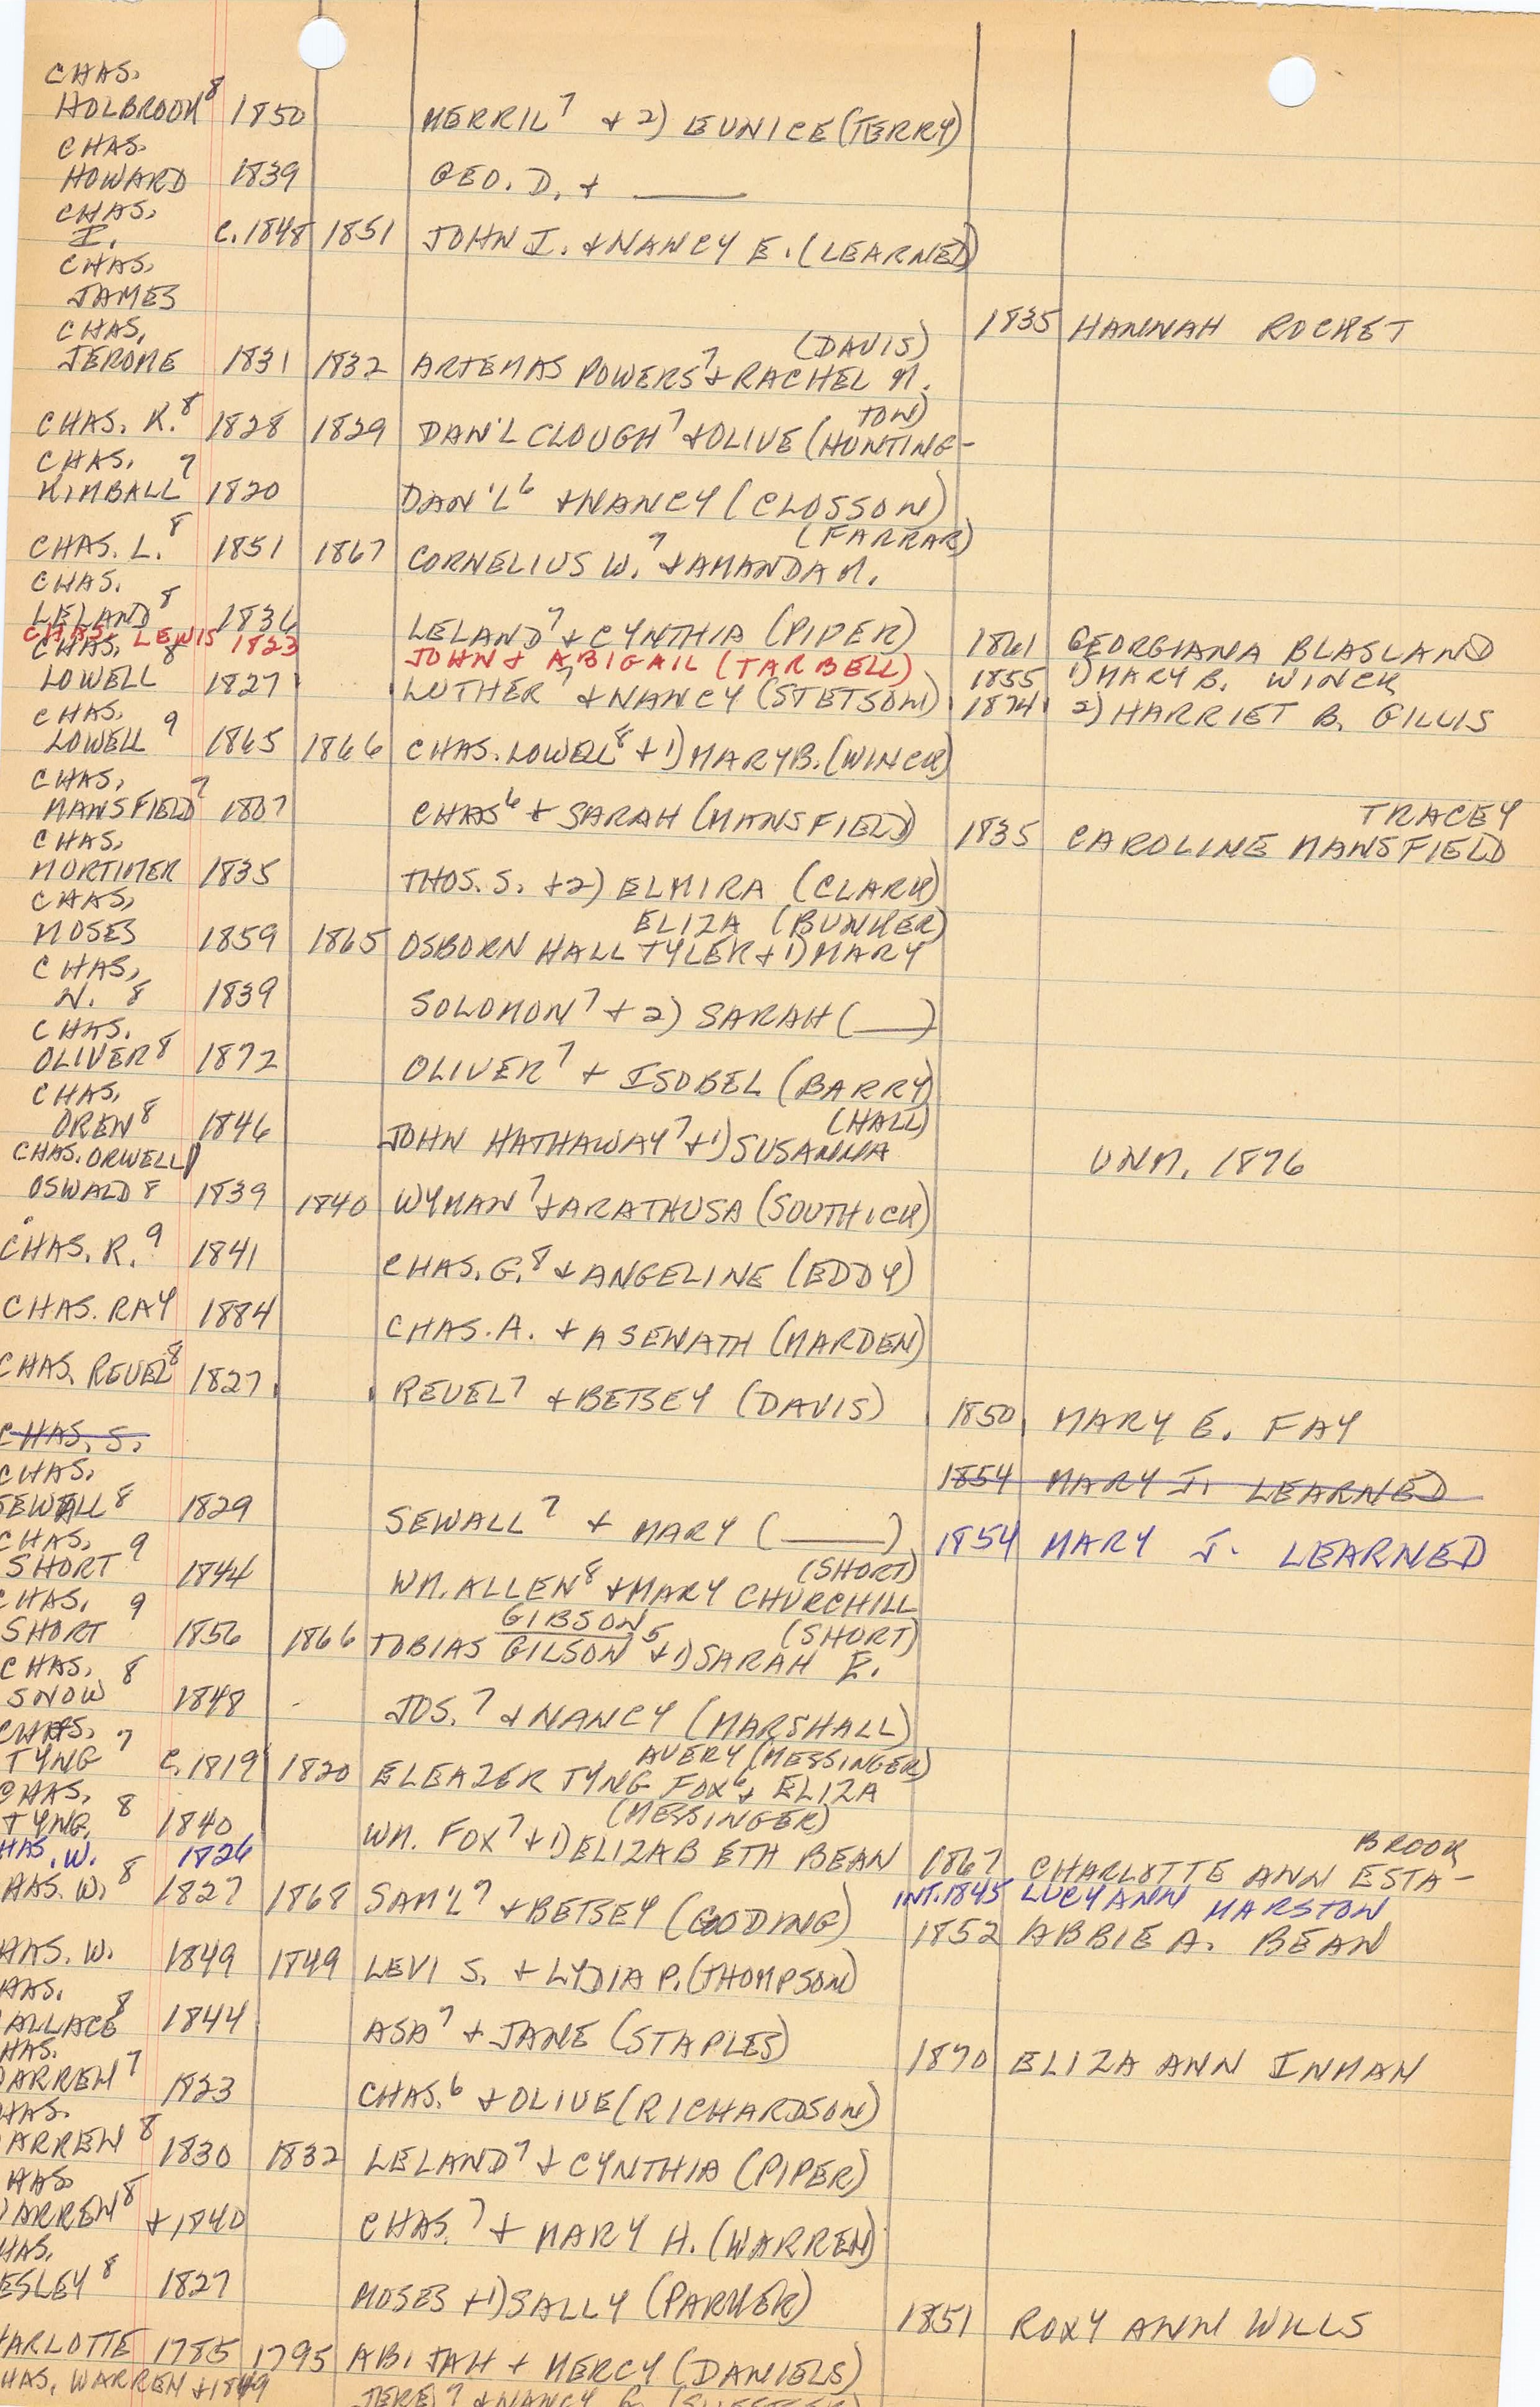 CHAS.
HOLBROOK⁸ 1850 MERRIL⁷ & 2) EUNICE (TERRY)
CHAS.
HOWARD 1839 GEO. D. & ____
CHAS.
I. C. 1848 1851 JOHN I. & NANCY E. (LEARNED)
CHAS.
JAMES 1835 HANNAH ROCKET
CHAS. (DAVIS)
JEROME 1831 1832 ARTEMAS POWERS⁷ & RACHEL M.
TON)
CHAS. K.⁸ 1828 1829 DAN'L CLOUGH⁷ & OLIVE (HUNTING-
CHAS.
KIMBALL⁷ 1820 DAN'L⁶ & NANCY (CLOSSON)
(FARRAR)
CHAS. L.⁸ 1851 1867 CORNELIUS W.⁷ & AMANDA M.
CHAS.
LELAND⁸ 1836 LELAND⁷ & CYNTHIA (PIPER) 1861 GEORGIANA BLASLAND
CHAS. LEWIS 1823 JOHN & ABIGAIL (TARBELL)
CHAS. 8 1855 1) MARY B. WINCK
LOWELL 1827 LUTHER⁷ & NANCY (STETSON) 1874 2) HARRIET B. GILLIS
CHAS.
LOWELL⁹ 1865 1866 CHAS. LOWELL⁸ & 1) MARY B. (WINCK)
CHAS. TRACEY
MANSFIELD⁷ 1807 CHAS⁶ & SARAH (MANSFIELD) 1835 CAROLINE MANSFIELD
CHAS.
MORTIMER 1835 THOS. S. & 2) ELMIRA (CLARK)
CHAS. ELIZA (BUNKER)
MOSES 1859 1865 OSBORN HALL TYLER & 1) MARY
CHAS.
N. 8 1839 SOLOMON⁷ & 2) SARAH (____)
CHAS.
OLIVER⁸ 1872 OLIVER⁷ & ISOBEL (BARRY)
CHAS. (HALL)
OREN⁸ 1846 JOHN HATHAWAY⁷ & 1) SUSANNA UNM. 1876
CHAS. ORWELL
OSWALD⁸ 1839 1840 WYMAN⁷ & ARATHUSA (SOUTHICK)
CHAS. R.⁹ 1841 CHAS. G.⁸ & ANGELINE (EDDY)
CHAS. RAY 1884 CHAS. A. & ASENATH (MARDEN)
CHAS. REUEL⁸ 1827 REUEL⁷ & BETSEY (DAVIS) 1850 MARY E. FAY
CHAS. S. 1854 MARY J. LEARNED
CHAS.
SEWALL⁸ 1829 SEWALL⁷ & MARY (____) 1854 MARY J. LEARNED
CHAS. 9 (SHORT)
SHORT 1844 WM. ALLEN⁸ & MARY CHURCHILL
CHAS. 9 GIBSON (SHORT)
SHORT 1856 1866 TOBIAS GILSON⁵ & 1) SARAH E.
CHAS. 8
SNOW 1848 JOS.⁷ & NANCY (MARSHALL)
CHAS. 7 AVERY (MESSINGER)
TYNG C. 1819 1820 ELEAZER TYNG FOX⁶ & ELIZA
CHAS. 8 (MESSINGER) BROOK
TYNG. 1840 WM. FOX⁷ & 1) ELIZABETH BEAN 1867 CHARLOTTE ANN ESTA-
HAS. W. 1826 INT. 1845 LUCY ANN MARSTON
HAS. W.⁸ 1827 1868 SAM'L⁷ & BETSEY (GODING) 1852 ABBIE A. BEAN
HAS. W. 1849 1849 LEVI S. & LYDIA P. (THOMPSON)
HAS.
ALLACE⁸ 1844 ASA⁷ & JANE (STAPLES) 1870 ELIZA ANN INMAN
HAS.
ARREN⁷ 1823 CHAS.⁶ & OLIVE (RICHARDSON)
HAS.
ARREN⁸ 1830 1832 LELAND⁷ & CYNTHIA (PIPER)
HAS
ARREN⁸ +1840 CHAS.⁷ & MARY H. (WARREN)
HAS.
ESLEY⁸ 1827 MOSES & 1) SALLY (PARKER) 1851 ROXY ANN WILLS
HARLOTTE 1785 1795 ABIJAH & MERCY (DANIELS)
HAS. WARREN +1849 JERE⁷ & NANCY